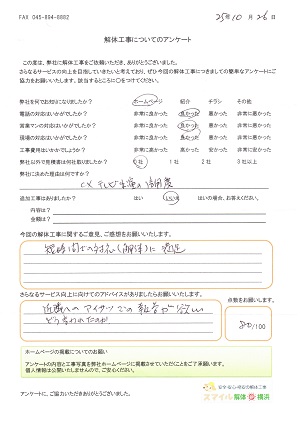 FAX 045-894-8882
25年10月26日
解体工事についてのアンケート
この度は、弊社に解体工事をご依頼いただき、ありがとうございました。
さらなるサービスの向上を目指していきたいと考えており、ぜひ今回の解体工事につきましての簡単なアンケートにご
協力をお願いいたします。該当するところに〇をつけてください。
弊社を何でお知りになりましたか？ ホームページ 紹介 チラシ その他
電話の対応はいかがでしたか？ 非常に良かった 良かった 悪かった 非常に悪かった
営業マンの対応はいかがでしたか？ 非常に良かった 良かった 悪かった 非常に悪かった
現場の対応はいかがでしたか？ 非常に良かった 良かった 悪かった 非常に悪かった
工事費用はいかがでしょうか？ 非常に安かった 安かった 高かった 非常に高かった
弊社以外で見積書は何社取りましたか？ 0社 1社 2社 3社以上
弊社に決めた理由は何ですか？
追加工事はありましたか？ はい いいえ はいの場合、お答えください。
内容は？
金額は？
今回の解体工事に関するご意見、ご感想をお願いします。
さらなるサービス向上に向けてのアドバイスがありましたらお願いします。
点数をお願いします。
80/100
ホームページの掲載についてのお願い
アンケートの内容と工事写真を弊社ホームページに掲載させていただくことをご了承願います。
個人情報は公開いたしませんので、ご安心ください。
アンケートに、ご協力いただきありがとうございました。
安全・安心・格安の解体工事
スマイル解体 横浜